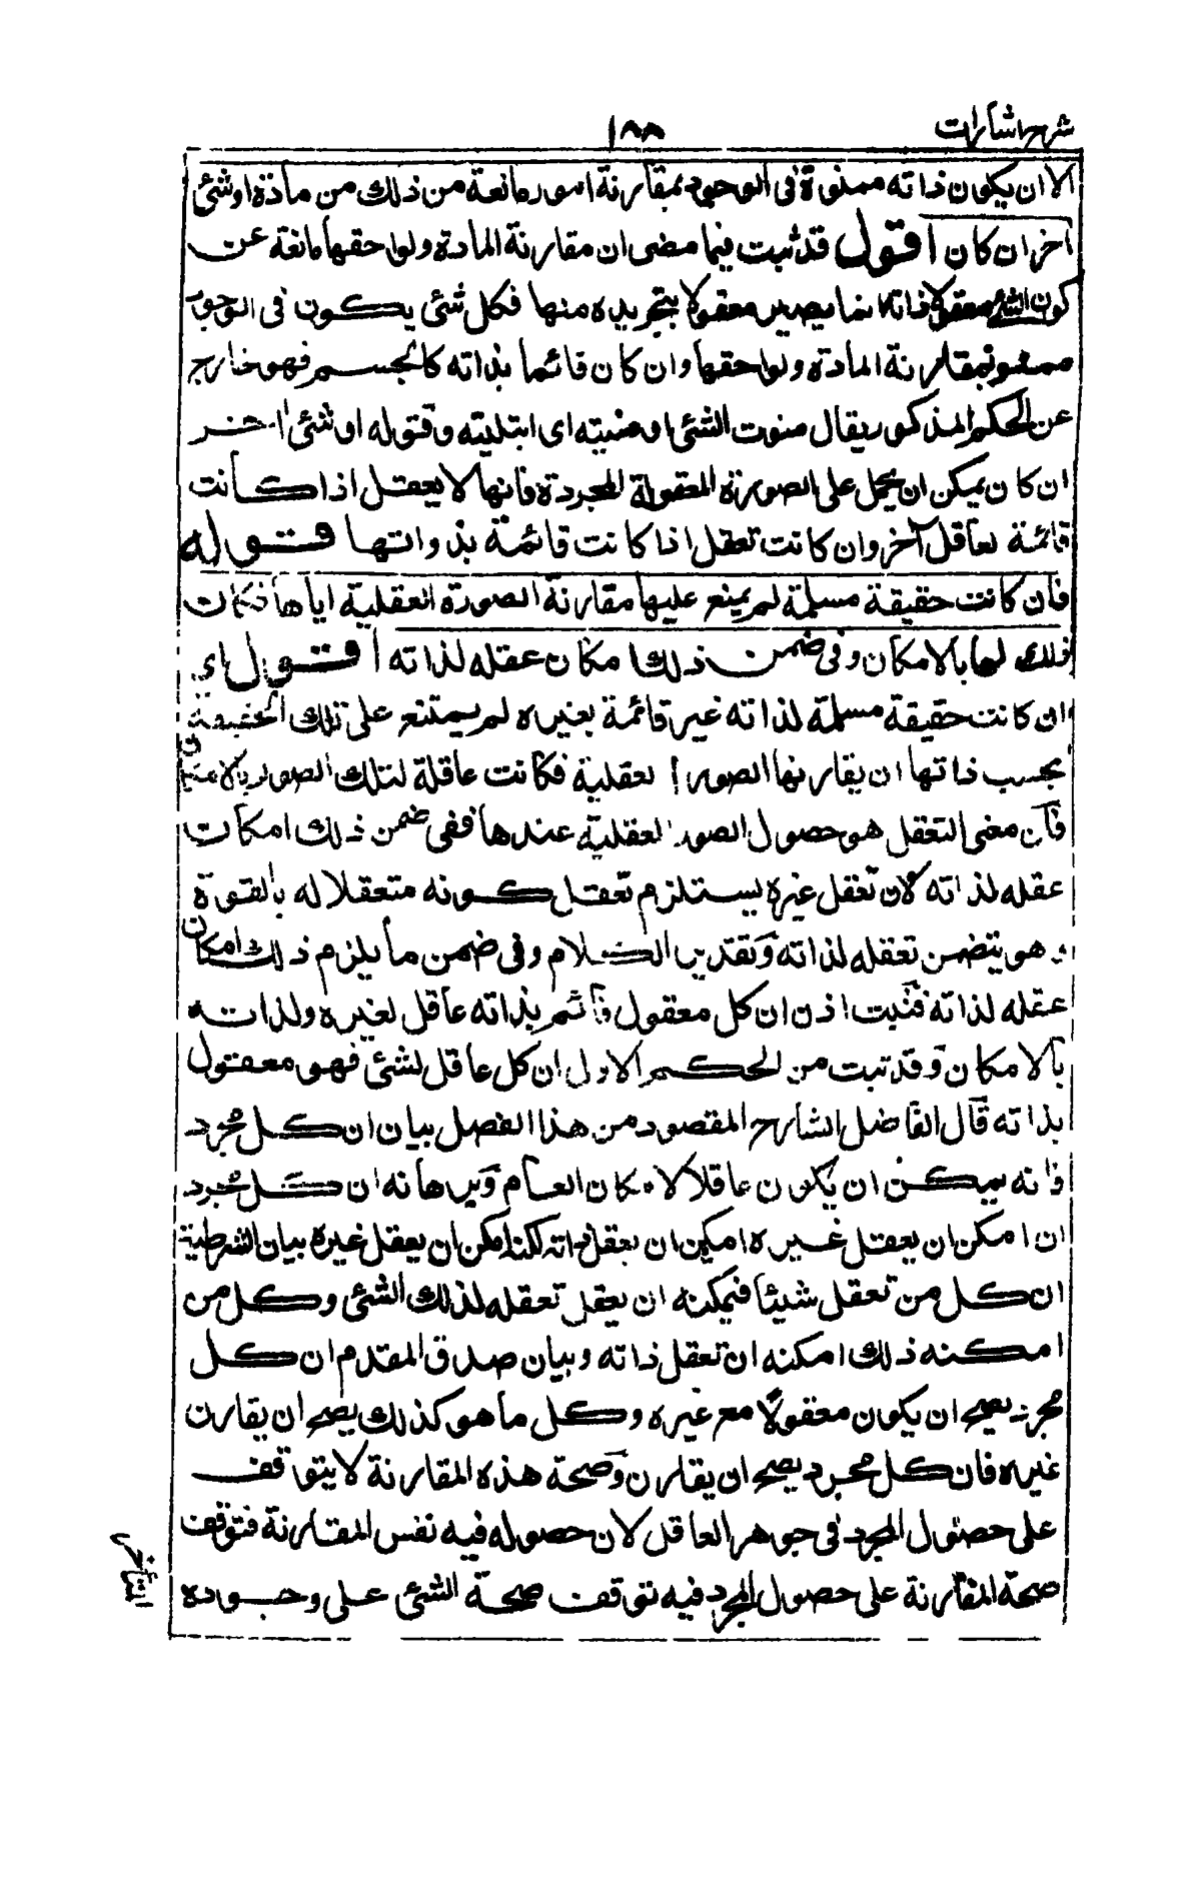 شرح اشارات
١٨٨
الا ان يكون ذاته ممنوة فى الوجود بمقارنة امور مانعة من ذلك من مادة او شئ
اخر ان كان اقول قد ثبت فيما مضى ان مقارنة المادة ولواحقها مانعة عن
كون الشئ معقولا فانه انما يصير معقولا بتجريده منها فكل شئ يكون فى الوجود
ممنوا بمقارنة المادة ولواحقها وان كان قائما بذاته كالجسم فهو خارج
عن الحكم المذكور يقال منوت الشئ او منيته اى ابتليته وقوله او شئ اخر
ان كان يمكن ان يحمل على الصورة المعقولة المجردة فانها لا يعقل اذا كانت
قائمة بعاقل آخر وان كانت تعقل اذا كانت قائمة بذواتها قوله
فان كانت حقيقة مسلمة لم يمنع عليها مقارنة الصورة العقلية اياها فكان
ذلك لها بالامكان وفى ضمن ذلك امكان عقله لذاته اقول اى
ان كانت حقيقة مسلمة لذاته غير قائمة بغيره لم يمتنع على تلك الحقيقة
بحسب ذاتها ان يقارنها الصور العقلية فكانت عاقلة لتلك الصور بالامكان
فان معنى التعقل هو حصول الصور العقلية عندها ففى ضمن ذلك امكان
عقله لذاته لان تعقل غيره يستلزم تعقل كونه متعقلا له بالقوة
و هو يتضمن تعقله لذاته وتقدير الكلام وفى ضمن ما يلزم ذلك امكان
عقله لذاته فثبت اذن ان كل معقول قائم بذاته عاقل لغيره ولذاته
بالامكان وقد ثبت من الحكم الاول ان كل عاقل لشئ فهو معقول
بذاته قال الفاضل الشارح المقصود من هذا الفصل بيان ان كل مجرد
فانه يمكن ان يكون عاقلا لامكان العام وبرهانه ان كل مجرد
ان امكن ان يعقل غيره امكن ان يعقل ذاته لكنه امكن ان يعقل غيره بيان الشرطية
ان كل من تعقل شيئا فيمكنه ان يعقل تعقله لذلك الشئ وكل من
امكنه ذلك امكنه ان تعقل ذاته وبيان صدق المقدم ان كل
مجرد يصح ان يكون معقولا مع غيره وكل ما هو كذلك يصح ان يقارن
غيره فان كل مجرد يصح ان يقارن وصحة هذه المقارنة لا يتوقف
على حصول المجرد فى جوهر العاقل لان حصوله فيه نفس المقارنة فتوقف
صحة المقارنة على حصول المجرد فيه توقف صحة الشئ على وجوده